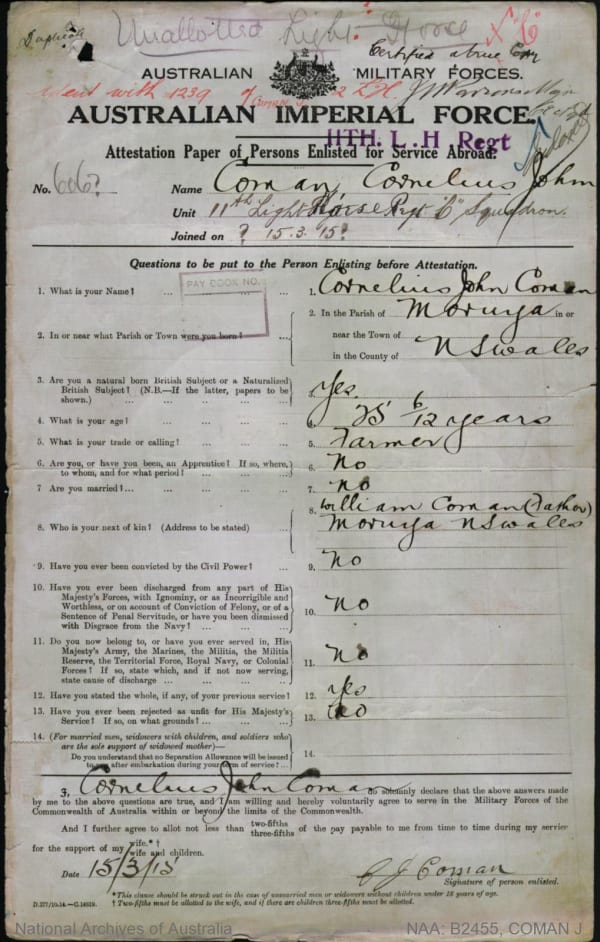 Duplicate
Unallotted Light Horse "C"
Certified a true Copy
AUSTRALIAN MILITARY FORCES.
Ident with 1239 of COMAN J. 12 L.H.
AUSTRALIAN IMPERIAL FORCE.
11TH. L.H Regt
Attestation Paper of Persons Enlisted for Service Abroad.
No. 606?
Name Coman Cornelius John
Unit 11th Light Horse Regt "C" Squadron.
Joined on ? 15.3.15?
Questions to be put to the Person Enlisting before Attestation.
PAY BOOK NO.
1. What is your Name? ... ... ... ... 1. Cornelius John Coman
2. In or near what Parish or Town were you born? ... 2. In the Parish of Moruya in or
near the Town of
in the County of NSWales
3. Are you a natural born British Subject or a Naturalized
British Subject? (N.B.—If the latter, papers to be
shown.) ... ... ... ... ... 3. Yes.
4. What is your age? ... ... ... ... 4. 25 6/12 years
5. What is your trade or calling? ... ... ... 5. Farmer
6. Are you, or have you been, an Apprentice? If so, where,
to whom, and for what period? ... ... ... 6. No
7 Are you married?... ... ... ... ... 7. No
8. Who is your next of kin? (Address to be stated) ... 8. William Coman (Father)
Moruya NSWales
9. Have you ever been convicted by the Civil Power? ... 9. No
10. Have you ever been discharged from any part of His
Majesty's Forces, with Ignominy, or as Incorrigible and
Worthless, or on account of Conviction of Felony, or of a
Sentence of Penal Servitude, or have you been dismissed
with Disgrace from the Navy? ... ... ... 10. No
11. Do you now belong to, or have you ever served in, His
Majesty's Army, the Marines, the Militia, the Militia
Reserve, the Territorial Force, Royal Navy, or Colonial
Forces? If so, state which, and if not now serving,
state cause of discharge ... ... ... ... 11. No
12. Have you stated the whole, if any, of your previous service? 12. Yes
13. Have you ever been rejected as unfit for His Majesty's
Service? If so, on what grounds? ... ... ... 13. No
14. (For married men, widowers with children, and soldiers who
are the sole support of widowed mother)—
Do you understand that no Separation Allowance will be issued
to you after embarkation during your term of service? ... 14.
I, Cornelius John Coman do solemnly declare that the above answers made
by me to the above questions are true, and I am willing and hereby voluntarily agree to serve in the Military Forces of the
Commonwealth of Australia within or beyond the limits of the Commonwealth.
And I further agree to allot not less than two-fifths three-fifths of the pay payable to me from time to time during my service
for the support of my wife.*† wife and children.
Date 15/3/15
C J Coman
Signature of person enlisted.
*This clause should be struck out in the case of unmarried men or widowers without children under 18 years of age.
† Two-fifths must be allotted to the wife, and if there are children three-fifths must be allotted.
National Archives of Australia NAA: B2455, COMAN J